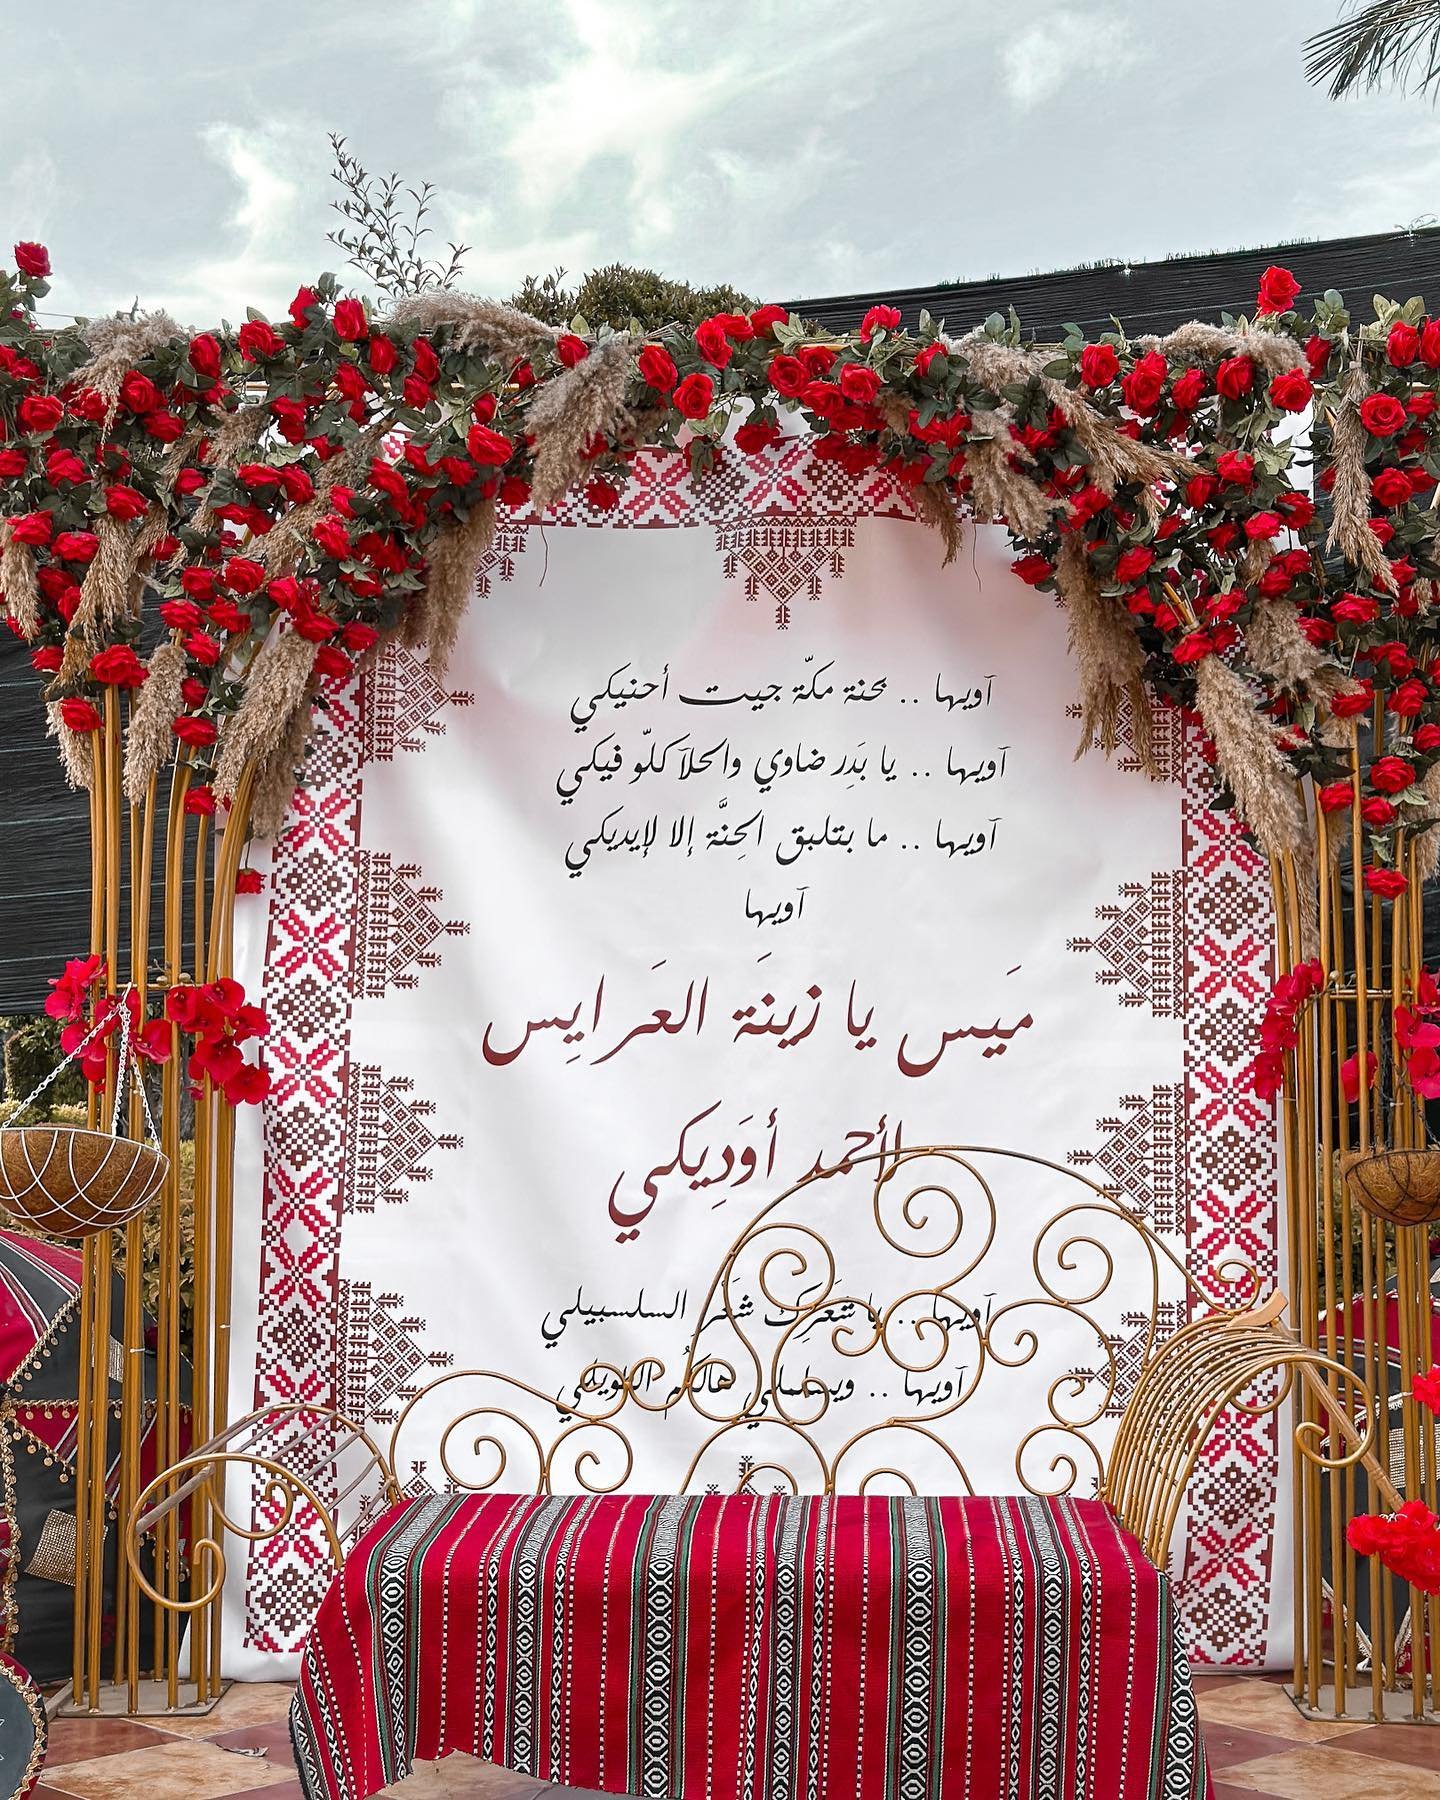 آويها .. بحنة مكّة جيت أحنيكي
آويها .. يا بَدِر ضاوي والحلا كلّو فيكي
آويها .. ما بتلبق الحِنَّة إلا لإيديكي
آويها
مَيَس يا زينَة العَرايِس
لأحمد أوَدِيكي
آويها .. يا شَعَرِك شَعَر السلسبيلي
آويها .. ويسلملي هالكُم الطويلي